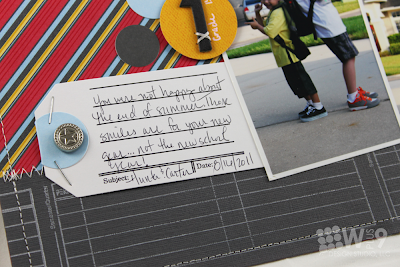 1
You were not happy about
the end of summer. These
smiles are for your new
gear... not the new school
year!
Subject: Hunter & Carter Date: 8/16/2011